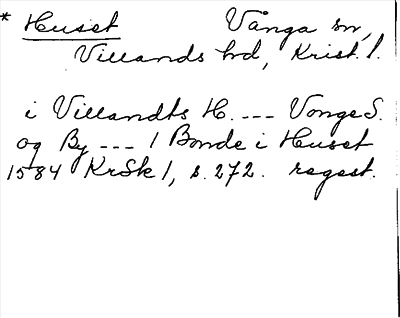 * Husset Vånga sn,
Villands hd, Krist. l.
i Villandts H. --- Vonge S.
og By --- 1 Bonde i Husset
1584 KrSk 1, s. 272. regest.